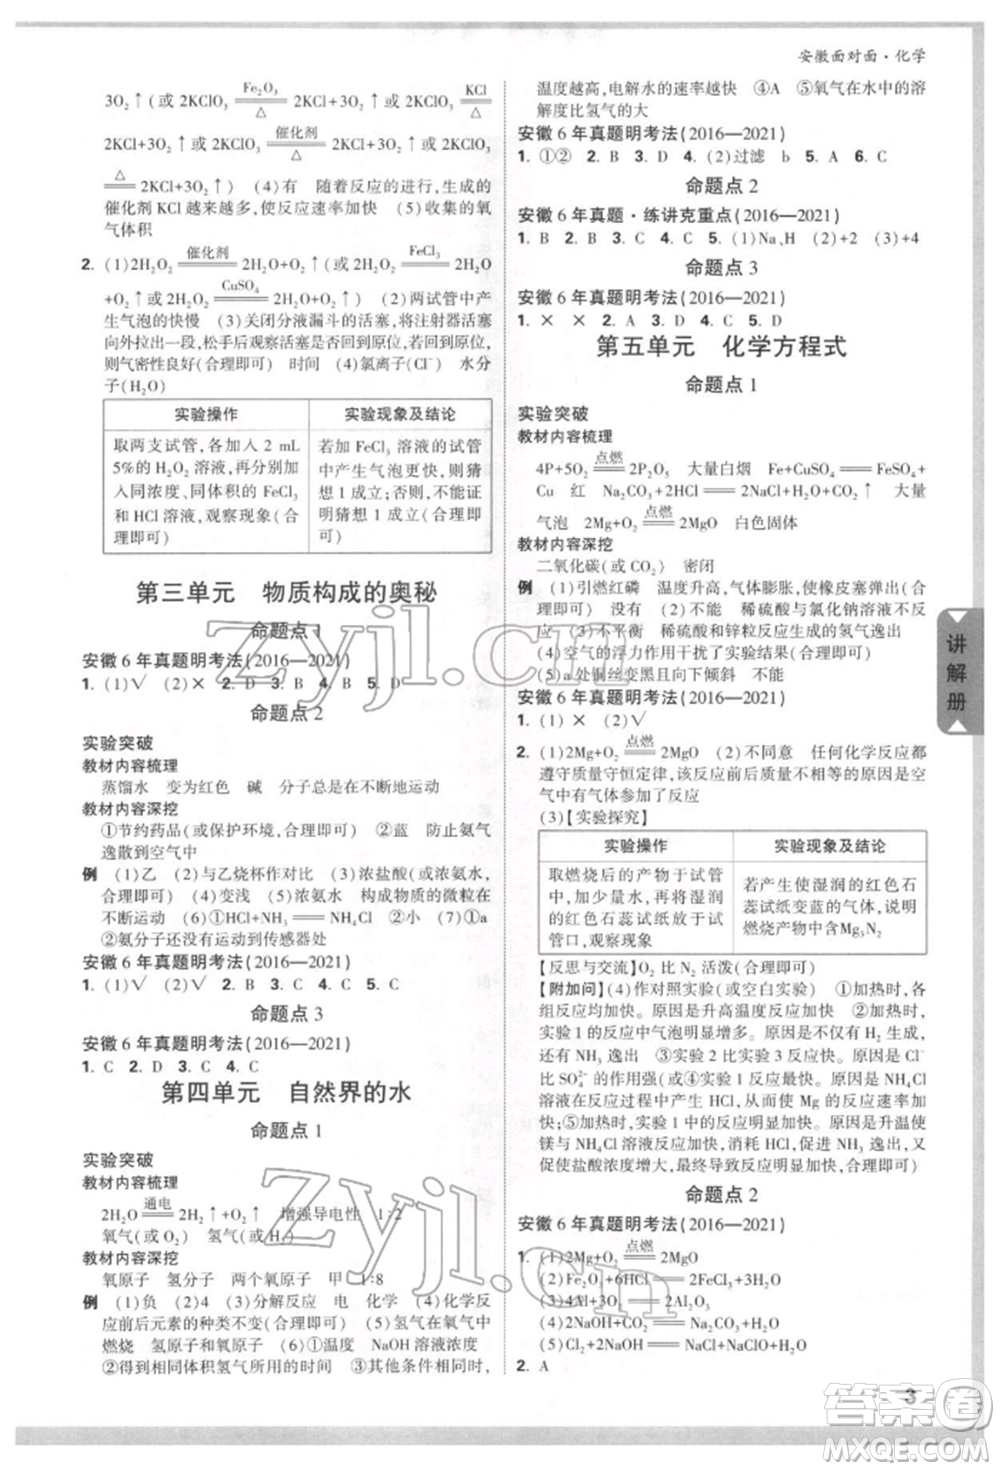 安徽面对面·化学
3O₂↑(或 2KClO₃ Fe₂O₃ ═══ △ 2KCl+3O₂↑ 或 2KClO₃ ═══ △
2KCl+3O₂↑ 或 2KClO₃ 催化剂 ═══ △ 2KCl+3O₂↑ 或 2KClO₃
△ ═══ 2KCl+3O₂↑) (4)有 随着反应的进行,生成的
催化剂 KCl 越来越多,使反应速率加快 (5)收集的氧
气体积
2. (1)2H₂O₂ 催化剂 ═══ 2H₂O+O₂↑(或 2H₂O₂ FeCl₃ ═══ 2H₂O
+O₂↑或 2H₂O₂ CuSO₄ ═══ 2H₂O+O₂↑) (2)两试管中产
生气泡的快慢 (3)关闭分液漏斗的活塞,将注射器活塞
向外拉出一段,松手后观察活塞是否回到原位,若回到原位,
则气密性良好(合理即可) 时间 (4)氯离子(Cl⁻) 水分
子(H₂O)
实验操作 实验现象及结论
取两支试管,各加入 2 mL 若加 FeCl₃ 溶液的试管
5%的 H₂O₂ 溶液,再分别加 中产生气泡更快,则猜
入等浓度、同体积的 FeCl₃ 想 1 成立;否则,不能证
和 HCl 溶液,观察现象(合 明猜想 1 成立(合理即可)
理即可)
第三单元 物质构成的奥秘
命题点 1
安徽 6 年真题明考法(2016—2021)
1. (1)√ (2)× 2. D 3. B 4. B 5. D
命题点 2
实验突破
教材内容梳理
蒸馏水 变为红色 碱 分子总是在不断地运动
教材内容深挖
①节约药品(或保护环境,合理即可) ②蓝 防止氨气
逸散到空气中
例 (1)乙 (2)与乙烧杯作对比 (3)浓盐酸(或浓氨水,
合理即可) (4)变浅 (5)浓氨水 构成物质的微粒在
不断运动 (6)①HCl+NH₃═══NH₄Cl ②小 (7)①a
②氨分子还没有运动到传感器处
安徽 6 年真题明考法(2016—2021)
1. (1)√ (2)√ 2. B 3. C 4. D 5. C
命题点 3
安徽 6 年真题明考法(2016—2021)
1. C 2. D 3. C 4. C
第四单元 自然界的水
命题点 1
实验突破
教材内容梳理
2H₂O 通电 ═══ 2H₂↑+O₂↑ 增强导电性 1:2
氧气(或 O₂) 氢气(或 H₂)
教材内容深挖
氧原子 氢分子 两个氧原子 甲 1:8
例 (1)负 (2)4 (3)分解反应 电 化学 (4)化学反
应前后元素的种类不变(合理即可) (5)氢气在氧气中
燃烧 氢原子和氧原子 (6)①温度 NaOH 溶液浓度
②得到相同体积氢气所用的时间 ③其他条件相同时,
温度越高,电解水的速率越快 ④A ⑤氧气在水中的溶
解度比氢气的大
安徽 6 年真题明考法(2016—2021)
1. ①② 2. B 3. D 4. (2)过滤 b 5. A 6. C
命题点 2
安徽 6 年真题·练讲克重点(2016—2021)
1. B 2. B 3. C 4. C 5. (1)Na、H (2)+2 (3)+4
命题点 3
安徽 6 年真题明考法(2016—2021)
1. × × 2. A 3. D 4. C 5. D
第五单元 化学方程式
命题点 1
实验突破
教材内容梳理
4P+5O₂ 点燃 ═══ 2P₂O₅ 大量白烟 Fe+CuSO₄═══FeSO₄+
Cu 红 Na₂CO₃+2HCl═══2NaCl+H₂O+CO₂↑ 大量
气泡 2Mg+O₂ 点燃 ═══ 2MgO 白色固体
教材内容深挖
二氧化碳(或 CO₂) 密闭
例 (1)引燃红磷 温度升高,气体膨胀,使橡皮塞弹出(合
理即可) 没有 (2)不能 稀硫酸与氯化钠溶液不发生反
应 (3)不平衡 稀硫酸和锌粒反应生成的氢气逸出
(4)空气的浮力作用干扰了实验结果(合理即可)
(5)a 处铜丝变黑且向下倾斜 不能
安徽 6 年真题明考法(2016—2021)
1. (1)× (2)√
2. (1)2Mg+O₂ 点燃 ═══ 2MgO (2)不同意 任何化学反应都
遵守质量守恒定律,该反应前后质量不相等的原因是空气
中有气体参加了反应
(3)【实验探究】
实验操作 实验现象及结论
取燃烧后的产物于试管 若产生使湿润的红色石
中,加少量水,再将湿润 蕊试纸变蓝的气体,说明
的红色石蕊试纸放于试 燃烧产物中含有 Mg₃N₂
管口,观察现象
【反思与交流】O₂ 比 N₂ 活泼(合理即可)
【附加问】(4)作对照实验(或空白实验) ①加热时,各
组反应均加快。原因是升高温度反应速率加快。②加热时,
实验 1 的反应中气泡明显增多。原因是不仅有 H₂ 生成,
还有 NH₃ 逸出(合理即可) ③加热时,原因是 Cl⁻
比 SO₄²⁻ 的作用强(或④实验 1 中的反应明显加快,原因是
加热的过程中产生 HCl,使 Mg 的反应加快。原因是 NH₄Cl
促进反应加快;⑤反应明显加快。原因是升高温度使
镁与 NH₄Cl 溶液反应加快,消耗 HCl,促进 NH₃ 逸出,又
促使盐酸浓度增大,最终导致反应加快)(合理即可)
命题点 2
安徽 6 年真题明考法(2016—2021)
1. (1)2Mg+O₂ 点燃 ═══ 2MgO
(2)Fe₂O₃+6HCl═══2FeCl₃+3H₂O
(3)4Al+3O₂═══2Al₂O₃
(4)2NaOH+CO₂═══Na₂CO₃+H₂O
(5)Cl₂+2NaOH═══NaCl+NaClO+H₂O
2. A
讲解册
3
zyjl.cn
zyjl.cn
答案圈
MXQE.COM